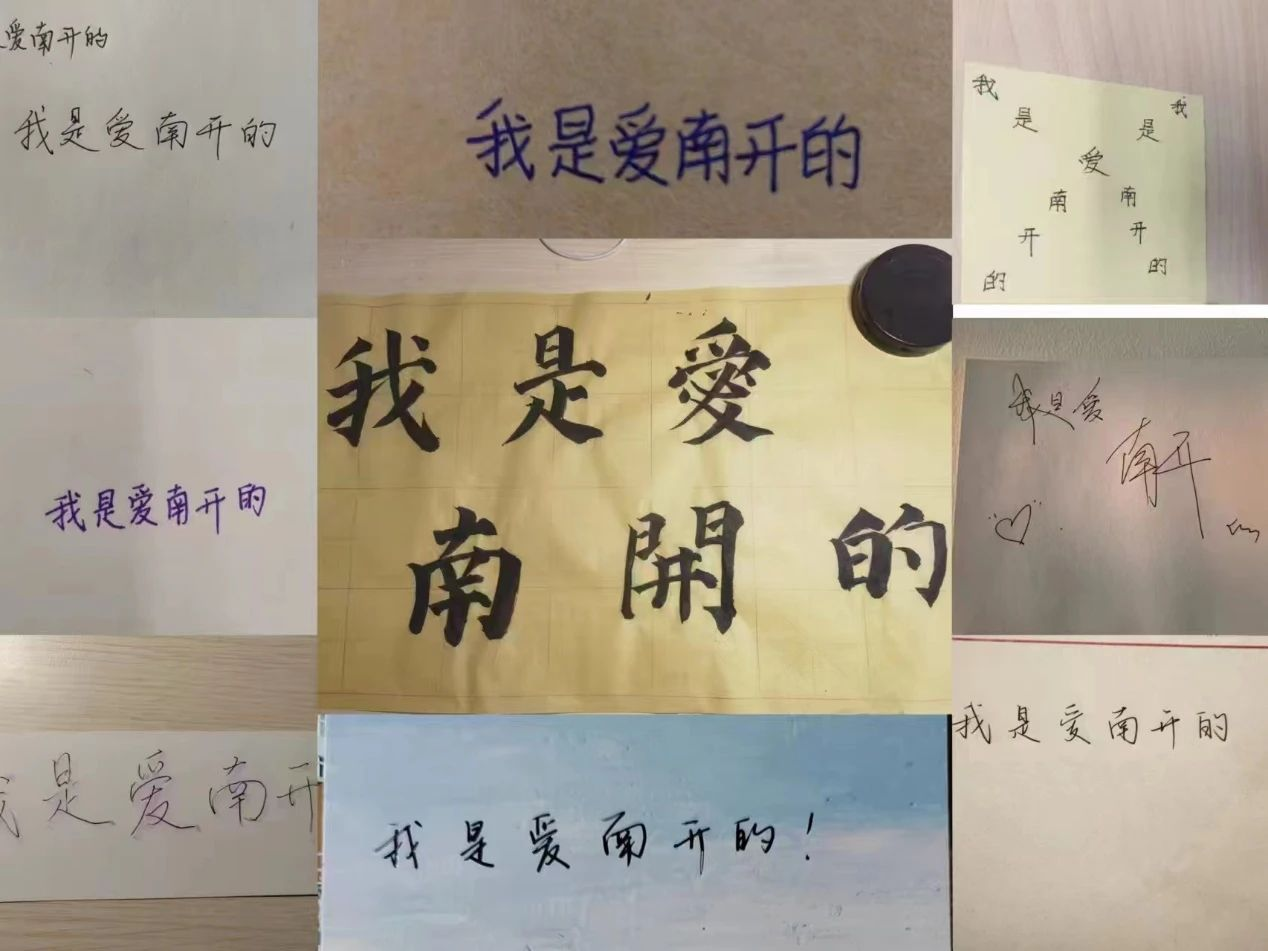 爱南开的
我是爱南开的
我是爱南开的
我 我
是 是
爱
南 南
开 开
的 的
我是爱南开的
我是愛
南開的
我是爱
南开
的
我是爱南开
我是爱南开的！
我是爱南开的